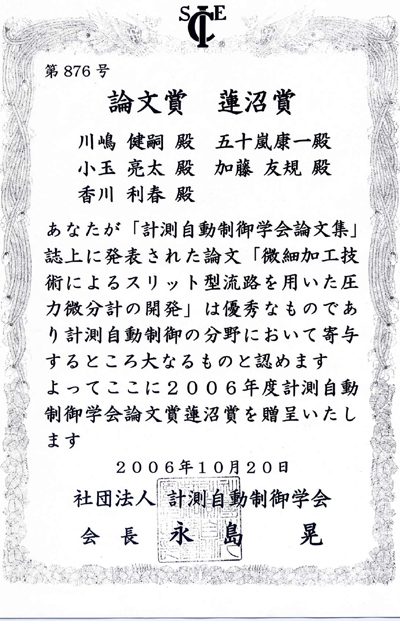 SICE
第876号
論文賞 蓮沼賞
川嶋 健嗣 殿 五十嵐康一殿
小玉 亮太 殿 加藤 友規 殿
香川 利春 殿
あなたが「計測自動制御学会論文集」
誌上に発表された論文「微細加工技
術によるスリット型流路を用いた圧
力微分計の開発」は優秀なものであ
り計測自動制御の分野において寄与
するところ大なるものと認めます
よってここに2006年度計測自動
制御学会論文賞蓮沼賞を贈呈いたし
ます
2006年10月20日
社団法人 計測自動制御学会
会 長 永 島 晃